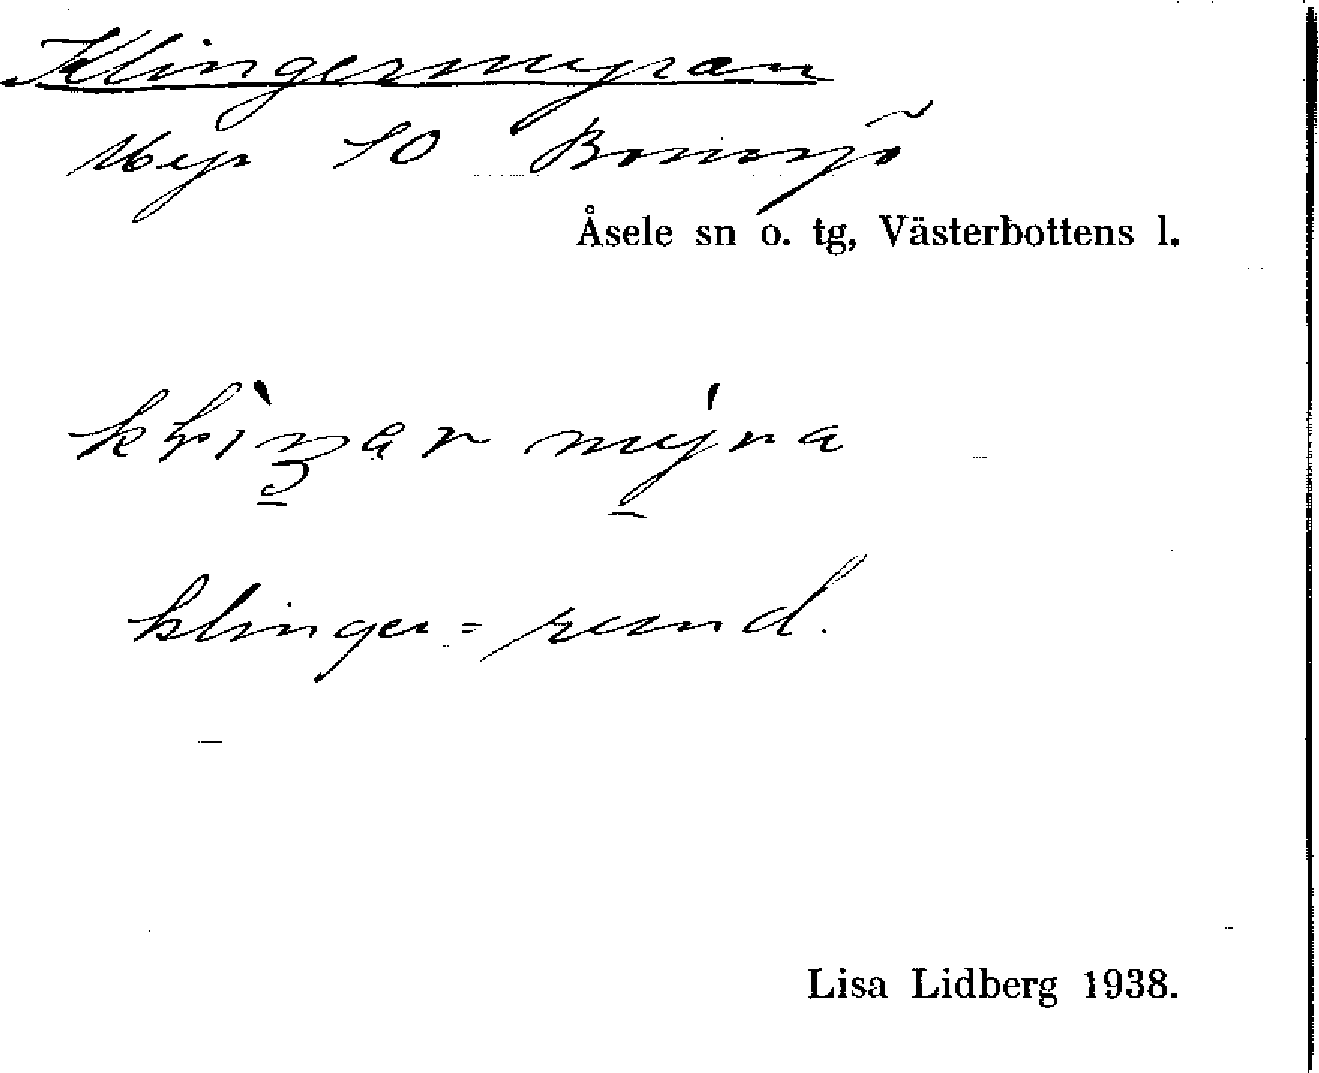 Klingermyran
Myr SO Bomsjö
Åsele sn o. tg, Västerbottens l.
klinger = rund.
Lisa Lidberg 1938.